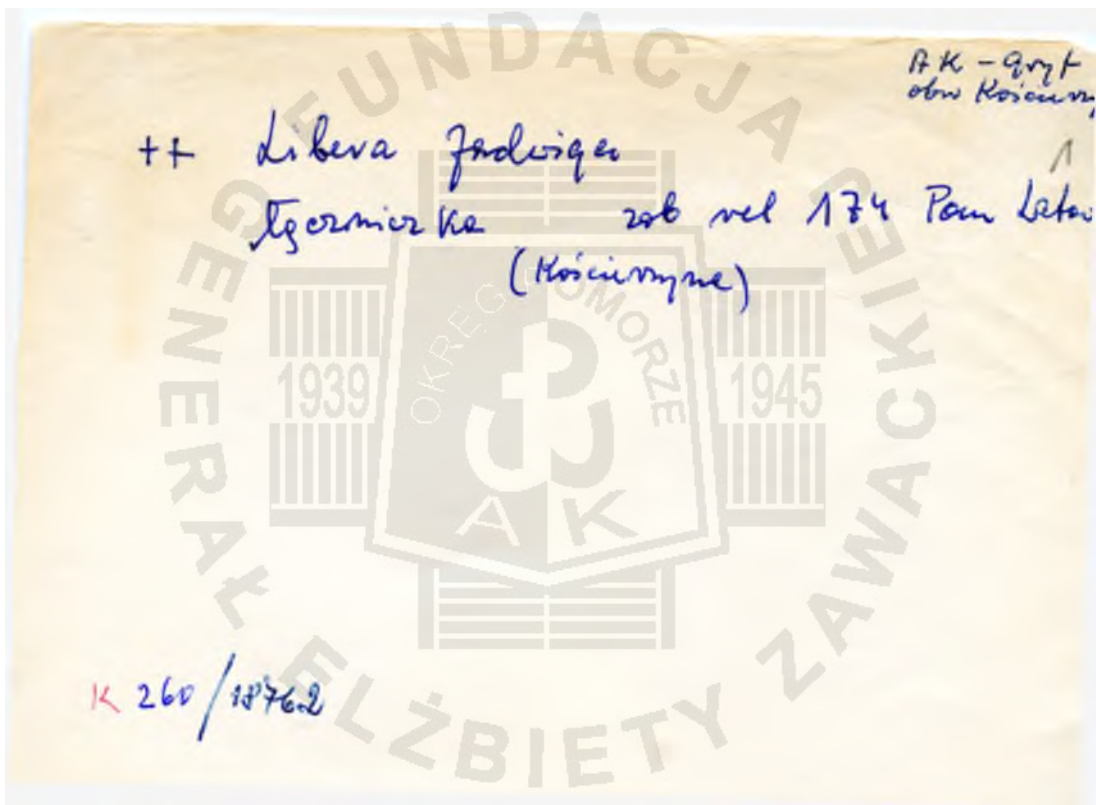 AK - Gryf
obw Kościerzy
1
++ Libera Jadwiga
łączniczka zob rel 174 Pom Latar
(Kościerzyna)
K 260/18762
FUNDACJA
GENERAŁ ELŻBIETY ZAWACKIEJ
OKRĘG POMORZE
1939
1945
AK